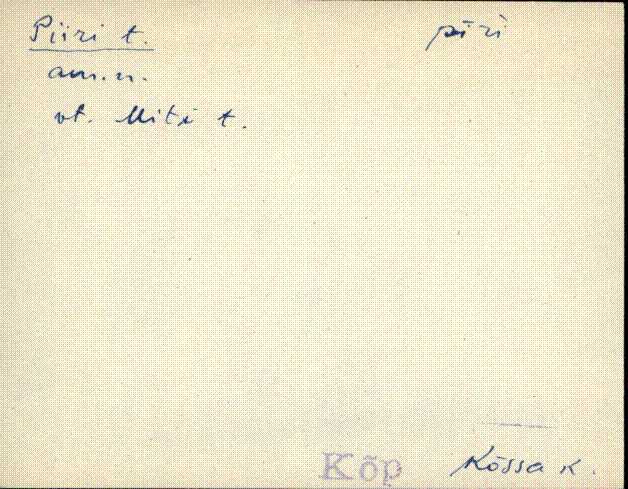 Piiri t. pīri
am.n.
vt. Miti t.
Kõp Kõssa k.